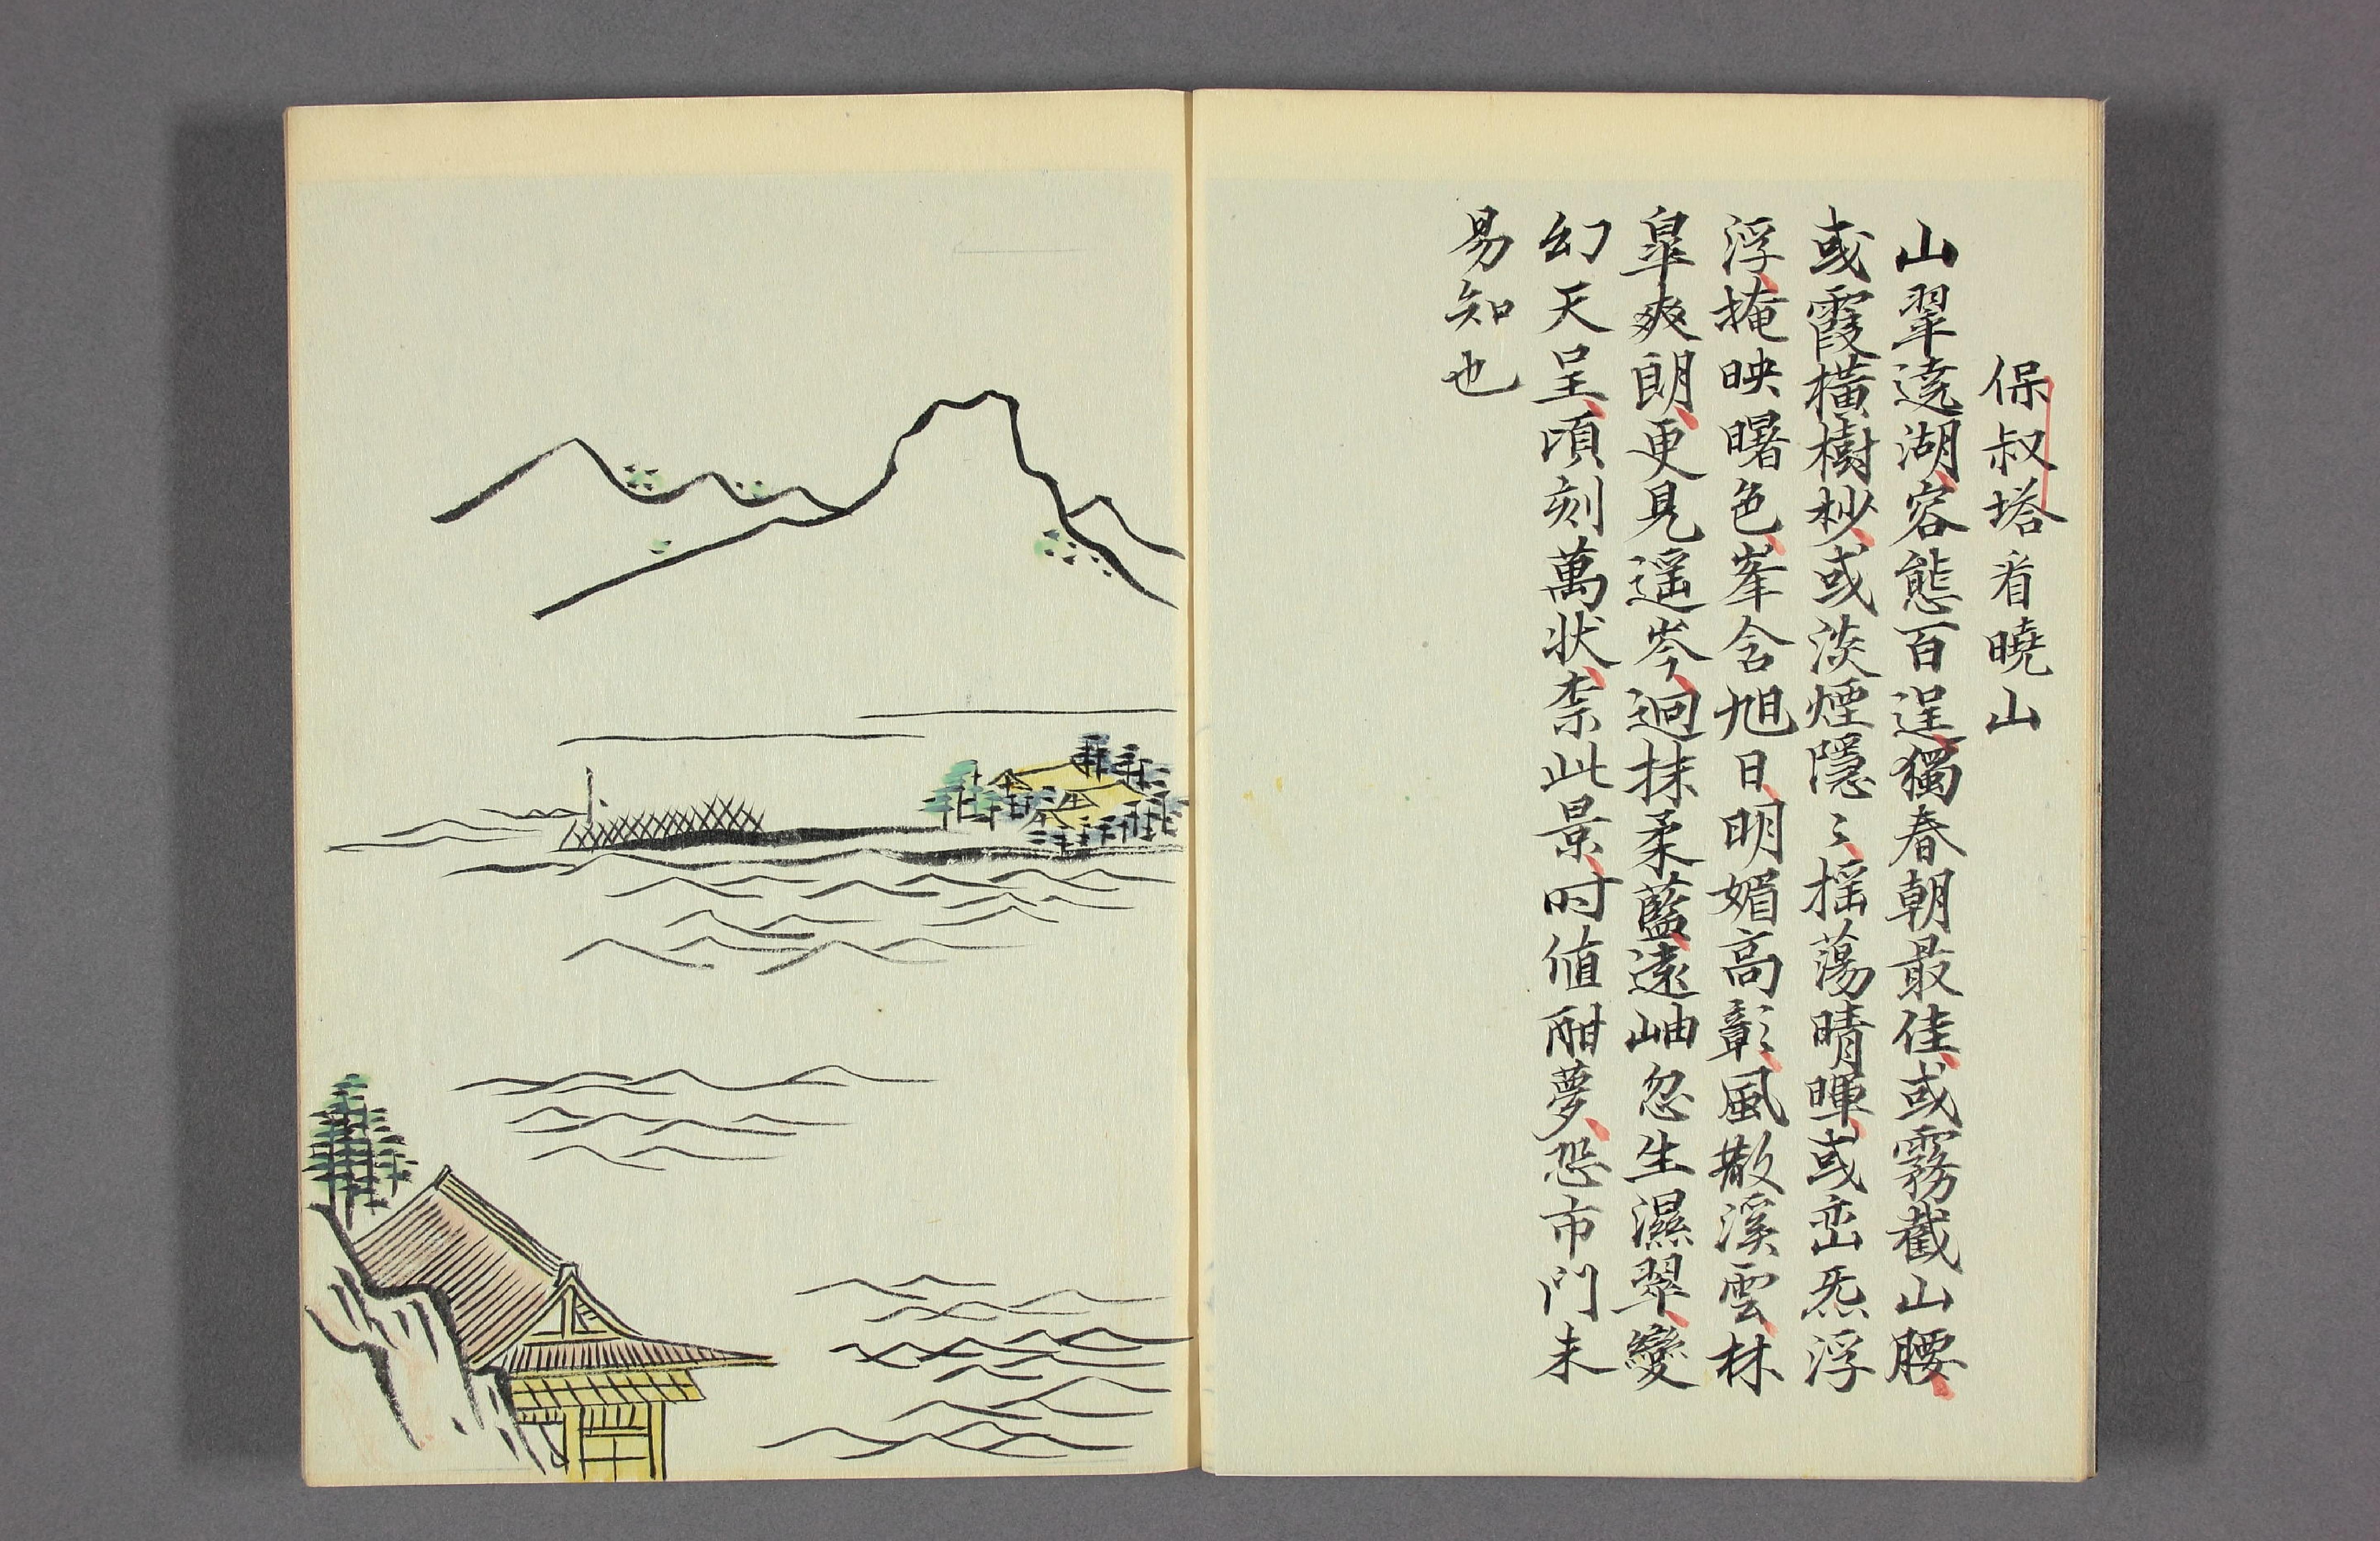 保叔塔看曉山
山翠遶湖容態百逞獨春朝最佳或霧截山腰
或霞橫樹杪或淡煙隱〻搖蕩晴暉或巒炁浮
浮掩映曙色峯含旭日明媚高彰風散溪雲林
皐爽朗更見遥岑迥抹柔藍遠岫忽生濕翠變
幻天呈頃刻萬狀柰此景时值酣夢恐市門未
易知也